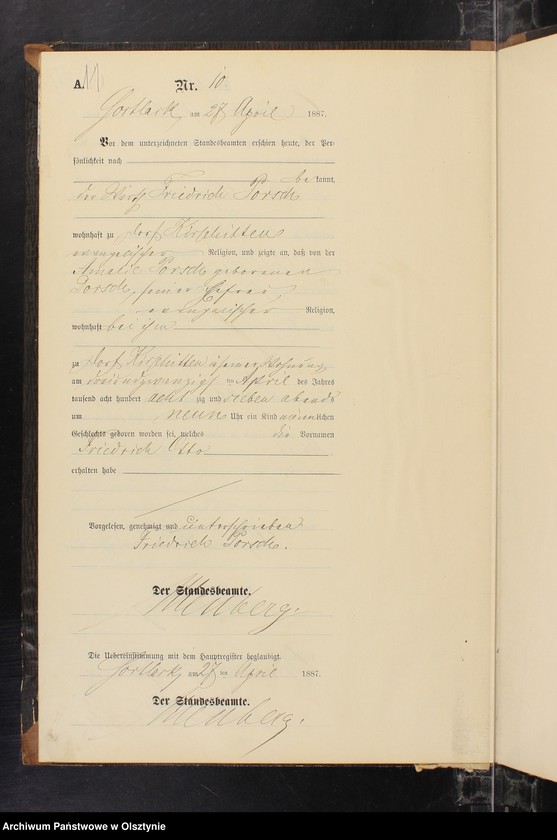 A. 11. Nr. 10
Gortlack am 27 April 1887.
Vor dem unterzeichneten Standesbeamten erschien heute, der Per-
sönlichkeit nach
be kannt,
der Wirth Friedrich Porsch
wohnhaft zu Dorf Kirschitten
evangelischer Religion, und zeigte an, daß von der
Amalie Porsch geborenen
Porsch, seiner Ehefrau
evangelischer Religion,
wohnhaft bei ihm
zu Dorf Kirschitten in seiner Wohnung
am dreiundzwanzigst ten April des Jahres
tausend acht hundert acht zig und sieben abends
um neun Uhr ein Kind männlichen
Geschlechts geboren worden sei, welches die Vornamen
Friedrich Otto
erhalten habe
Vorgelesen, genehmigt und unterschrieben
Friedrich Porsch.
Der Standesbeamte.
Die Uebereinstimmung mit dem Hauptregister beglaubigt.
Gortlack am 27 ten April 1887.
Der Standesbeamte.
Archiwum Państwowe w Olsztynie